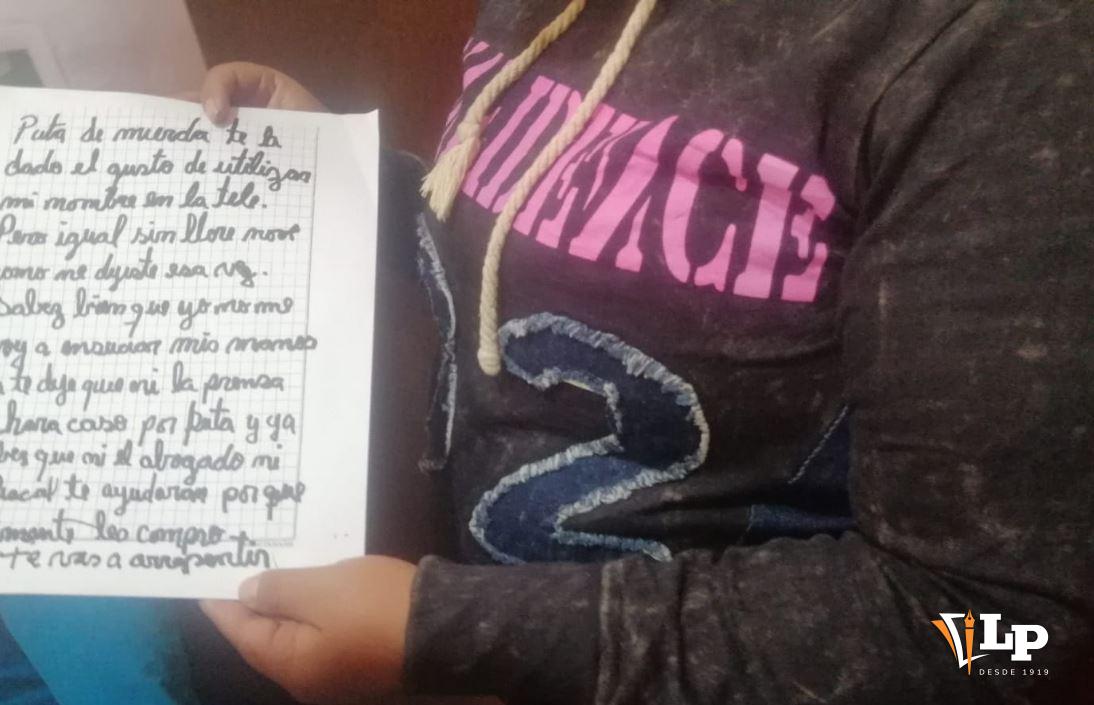 Puta de mierda te la
dado el gusto de utilizar
mi nombre en la tele.
Pero igual sin llore
como me dijiste esa vez.
Sabez bien que yo no me
voy a ensuciar mis manos
te dije que ni la prensa
hara caso por puta y ya
bes que ni el abogado ni
te ayudaran por que
mente los compro
te vas a arrepentir
LP
DESDE 1919